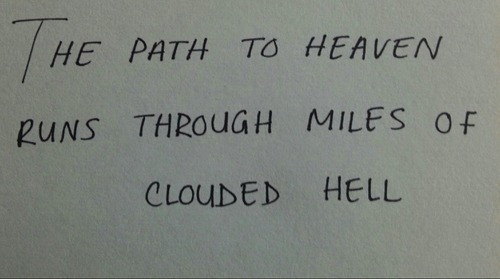 THE PATH TO HEAVEN
RUNS THROUGH MILES OF
CLOUDED HELL